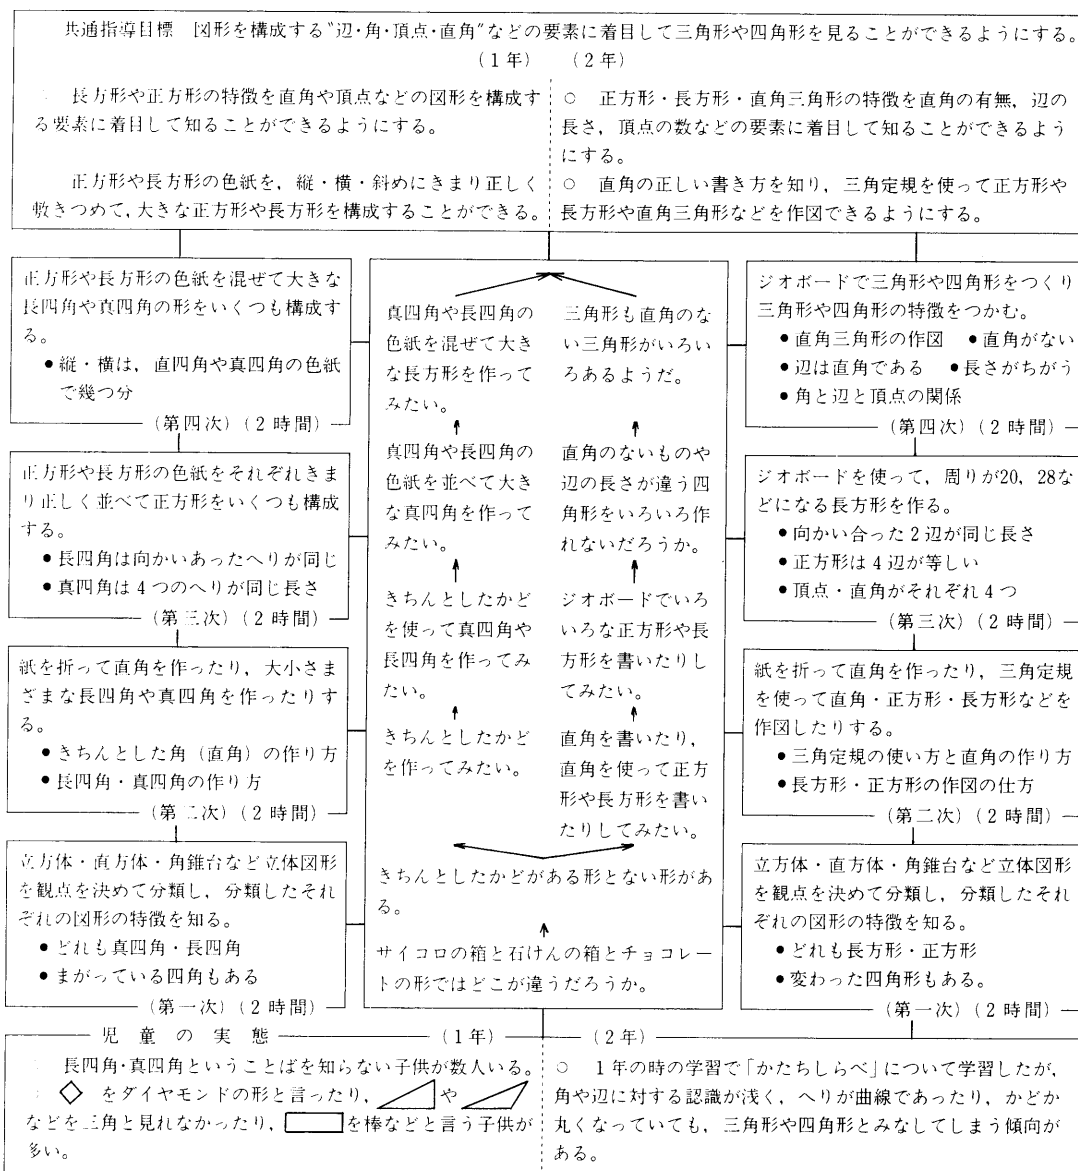 共通指導目標　図形を構成する"辺・角・頂点・直角"などの要素に着目して三角形や四角形を見ることができるようにする。
(1年)　(2年)
長方形や正方形の特徴を直角や頂点などの図形を構成す
る要素に着目して知ることができるようにする。
正方形や長方形の色紙を，縦・横・斜めにきまり正しく
敷きつめて，大きな正方形や長方形を構成することができる。
○　正方形・長方形・直角三角形の特徴を直角の有無，辺の
長さ，頂点の数などの要素に着目して知ることができるよう
にする。
○　直角の正しい書き方を知り，三角定規を使って正方形や
長方形や直角三角形などを作図できるようにする。
正方形や長方形の色紙を混ぜて大きな
長四角や真四角の形をいくつも構成す
る。
●縦・横は，直四角や真四角の色紙
で幾つ分
(第四次)(2時間)
正方形や長方形の色紙をそれぞれきま
り正しく並べて正方形をいくつも構成
する。
●長四角は向かいあったへりが同じ
●真四角は4つのへりが同じ長さ
(第三次)(2時間)
紙を折って直角を作ったり，大小さま
ざまな長四角や真四角を作ったりす
る。
●きちんとした角（直角）の作り方
●長四角・真四角の作り方
(第二次)(2時間)
立方体・直方体・角錐台など立体図形
を観点を決めて分類し，分類したそれ
ぞれの図形の特徴を知る。
●どれも真四角・長四角
●まがっている四角もある
(第一次)(2時間)
真四角や長四角の
色紙を混ぜて大き
な長方形を作って
みたい。
真四角や長四角の
色紙を並べて大き
な真四角を作って
みたい。
きちんとしたかど
を使って真四角や
長四角を作ってみ
たい。
きちんとしたかど
を作ってみたい。
三角形も直角のな
い三角形がいろい
ろあるようだ。
直角のないものや
辺の長さが違う四
角形をいろいろ作
れないだろうか。
ジオボードでいろ
いろな正方形や長
方形を書いたりし
てみたい。
直角を書いたり，
直角を使って正方
形や長方形を書い
たりしてみたい。
きちんとしたかどがある形とない形があ
る。
サイコロの箱と石けんの箱とチョコレー
トの形ではどこが違うだろうか。
ジオボードで三角形や四角形をつくり
三角形や四角形の特徴をつかむ。
●直角三角形の作図　●直角がない
●辺は直角である　●長さがちがう
●角と辺と頂点の関係
(第四次)(2時間)
ジオボードを使って，周りが20，28な
どになる長方形を作る。
●向かい合った2辺が同じ長さ
●正方形は4辺が等しい
●頂点・直角がそれぞれ4つ
(第三次)(2時間)
紙を折って直角を作ったり，三角定規
を使って直角・正方形・長方形などを
作図したりする。
●三角定規の使い方と直角の作り方
●長方形・正方形の作図の仕方
(第二次)(2時間)
立方体・直方体・角錐台など立体図形
を観点を決めて分類し，分類したそれ
ぞれの図形の特徴を知る。
●どれも長方形・正方形
●変わった四角形もある。
(第一次)(2時間)
児童の実態　(1年)　(2年)
長四角・真四角ということばを知らない子供が数人いる。
をダイヤモンドの形と言ったり，や
などを三角と見れなかったり，を棒などと言う子供が
多い。
○　1年の時の学習で「かたちしらべ」について学習したが，
角や辺に対する認識が浅く，へりが曲線であったり，かどか
丸くなっていても，三角形や四角形とみなしてしまう傾向が
ある。